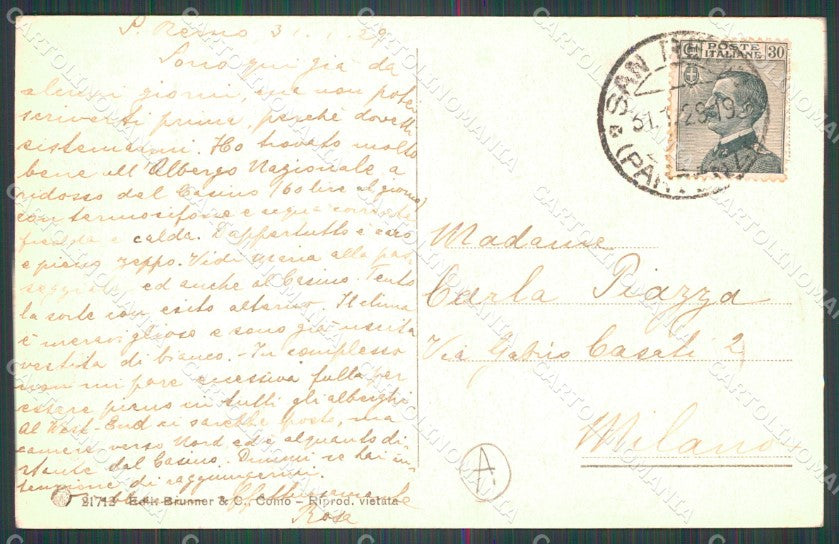 S. Remo 31.1.29
Sono qui già da
alcuni giorni, ma non potei
scriverti prima, perché dovetti
sistemarmi. Ho trovato molto
bene all'Albergo Nazionale a
ridosso del Casino (60 lire al giorno)
con termosifone e acqua corrente
fredda e calda. Dappertutto è caro
e pieno zeppo. Vidi Maria alla pas
seggiata ed anche al Casino. Tento
la sorte con esito alterno. Il clima
è meraviglioso e sono già uscita
vestita di bianco. - In complesso
non mi pare eccessiva folla per
essere pieno in tutti gli alberghi
Al West End ci sarebbe posto, ma
camere verso Nord ed è alquanto di-
stante dal Casino. Dimmi se hai in-
tenzione di raggiungermi.
affettuosamente
Rosa
21713 Ediz. Brunner & C., Como – Riprod. vietata
POSTE ITALIANE 30
SAN REMO
31.1.29-19
Madame
Carla Piazza
Via Gabrio Casati 2
Milano
A
CARTOLINOMANIA